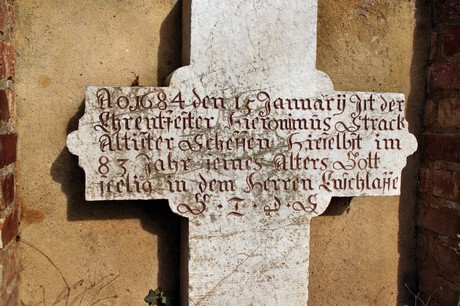 Ao 1684 den 15 Januarij Ist der
Ehrenfester Hieronimus Strack
Altster Scheffen Hieselbst im
83 Jahr seines Alters Gott
seelig in dem Herren Entschlaffe
S. T. D. S